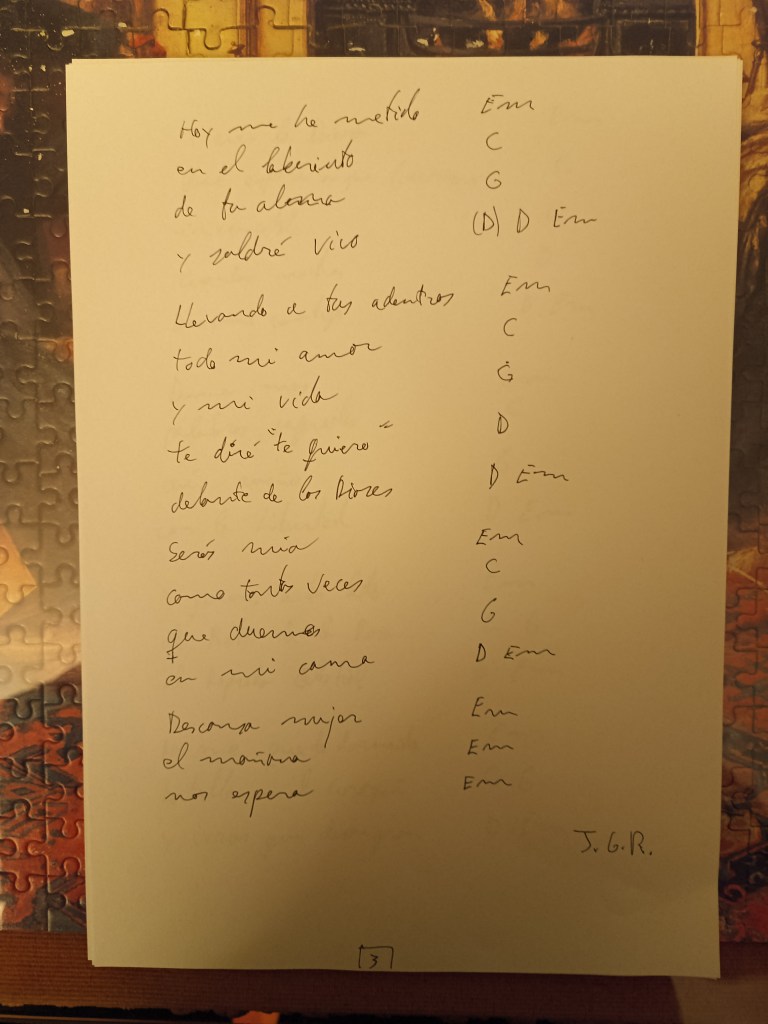 Hoy me he metido Em
en el laberinto C
de tu alma G
y saldré vivo (D) D Em
Llevando a tus adentros Em
todo mi amor C
y mi vida G
te diré "te quiero" D
delante de los Dioses D Em
Serás mía Em
como tantas veces C
que duermes G
en mi cama D Em
Descansa mujer Em
el mañana Em
nos espera Em
J.G.R.
3